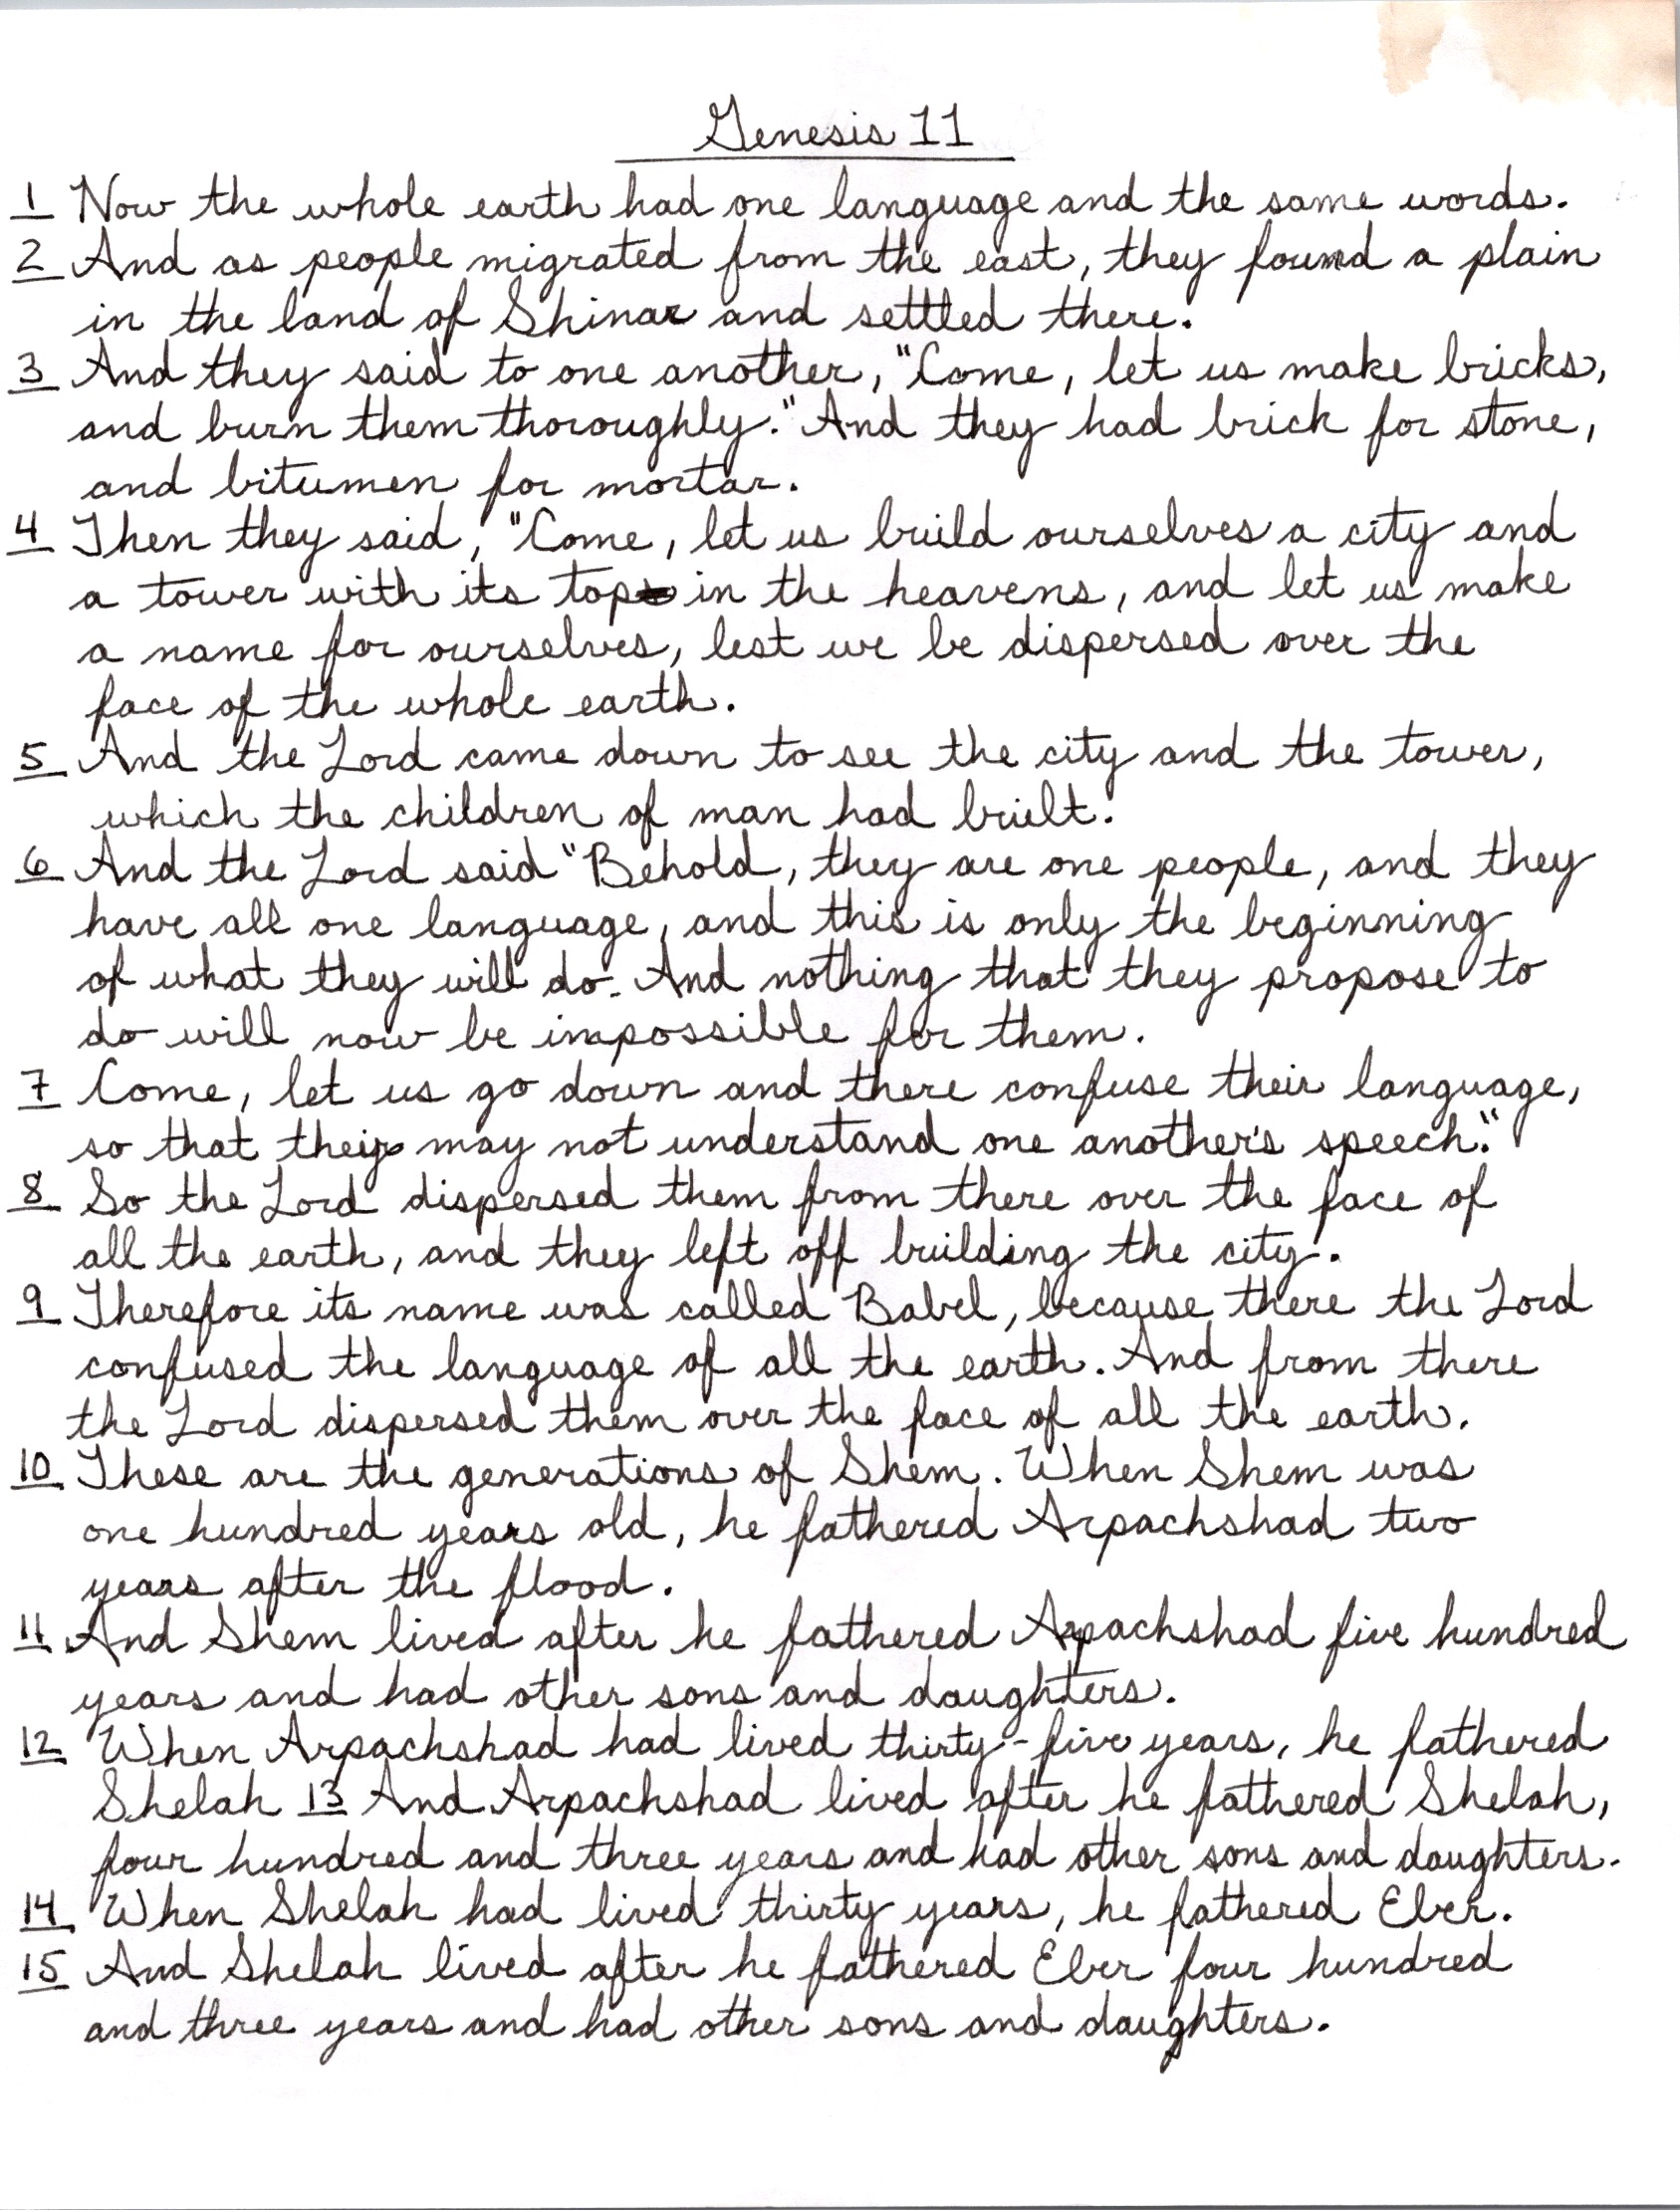 Genesis 11
1 Now the whole earth had one language and the same words.
2 And as people migrated from the east, they found a plain
in the land of Shinar and settled there.
3 And they said to one another, "Come, let us make bricks,
and burn them thoroughly." And they had brick for stone,
and bitumen for mortar.
4 Then they said, "Come, let us build ourselves a city and
a tower with its top in the heavens, and let us make
a name for ourselves, lest we be dispersed over the
face of the whole earth.
5 And the Lord came down to see the city and the tower,
which the children of man had built.
6 And the Lord said "Behold, they are one people, and they
have all one language, and this is only the beginning
of what they will do. And nothing that they propose to
do will now be impossible for them.
7 Come, let us go down and there confuse their language,
so that they may not understand one another's speech."
8 So the Lord dispersed them from there over the face of
all the earth, and they left off building the city.
9 Therefore its name was called Babel, because there the Lord
confused the language of all the earth. And from there
the Lord dispersed them over the face of all the earth.
10 These are the generations of Shem. When Shem was
one hundred years old, he fathered Arpachshad two
years after the flood.
11 And Shem lived after he fathered Arpachshad five hundred
years and had other sons and daughters.
12 When Arpachshad had lived thirty-five years, he fathered
Shelah 13 And Arpachshad lived after he fathered Shelah,
four hundred and three years and had other sons and daughters.
14 When Shelah had lived thirty years, he fathered Eber.
15 And Shelah lived after he fathered Eber four hundred
and three years and had other sons and daughters.